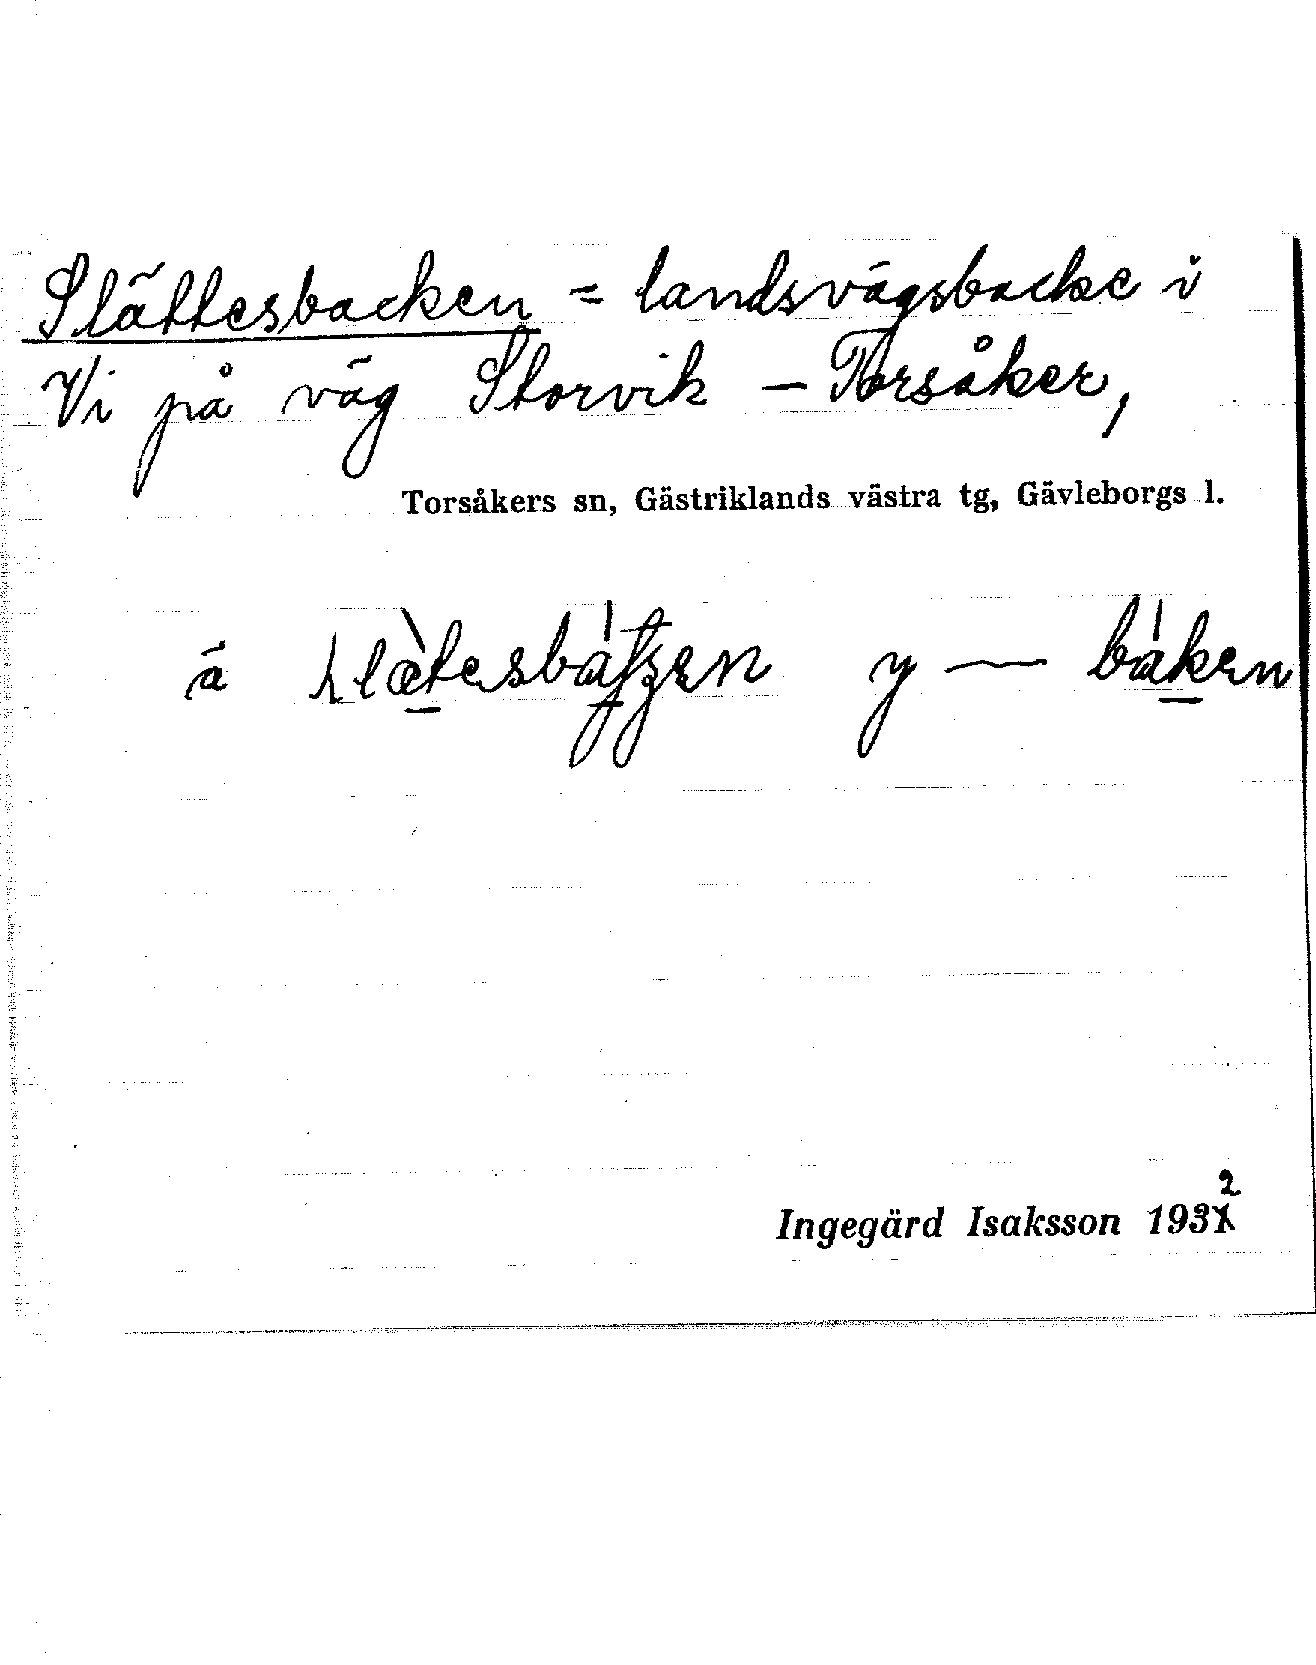 Slättesbacken = landsvägsbacke i
Vi på väg Storvik – Torsåker,
Torsåkers sn, Gästriklands västra tg, Gävleborgs l.
ä slæ̀tesbátʒen y — báken
2
Ingegärd Isaksson 1931